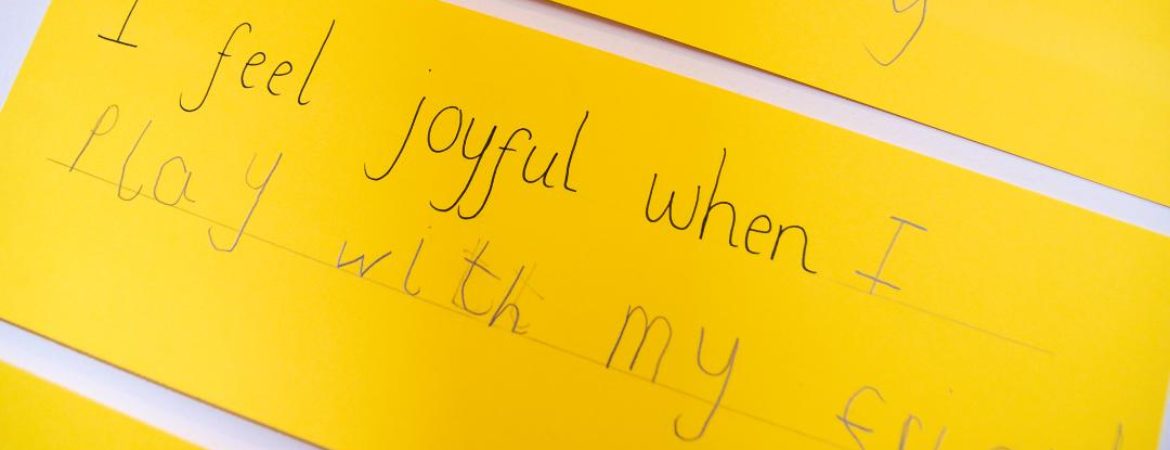 I feel joyful when I
Play with my